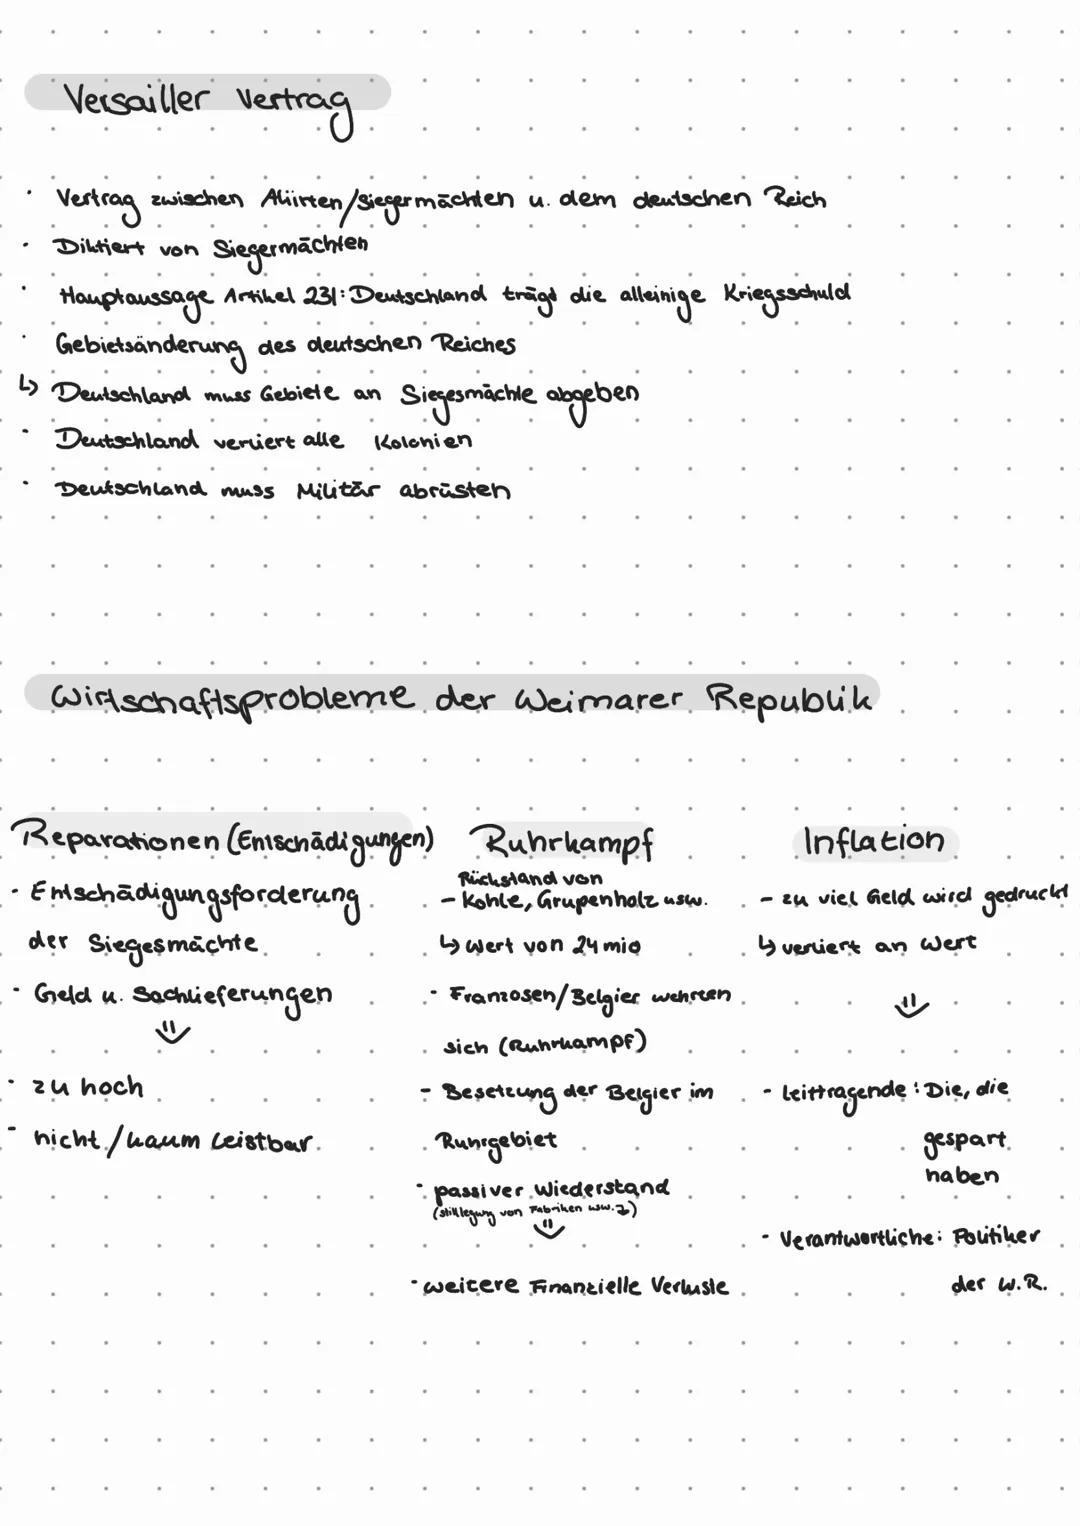 Versailler Vertrag
· Vertrag zwischen Aliirten/Siegermächten u. dem deutschen Reich
· Diktiert von Siegermächten
· Hauptaussage Artikel 231: Deutschland trägt die alleinige Kriegsschuld
· Gebietsänderung des deutschen Reiches
↳ Deutschland muss Gebiete an Siegesmächte abgeben
· Deutschland verliert alle Kolonien
· Deutschland muss Militär abrüsten
Wirtschaftsprobleme der Weimarer Republik
Reparationen (Entschädigungen)
· Entschädigungsforderung
der Siegesmächte
· Geld u. Sachlieferungen
⇓
· zu hoch
- nicht/kaum leistbar
Ruhrkampf
Rückstand von
- Kohle, Grupenholz usw.
↳ Wert von 24 mio
· Franzosen/Belgier wehrten
sich (Ruhrkampf)
- Besetzung der Belgier im
Ruhrgebiet
· passiver Wiederstand
(stilllegung von Fabriken usw.)
⇓
· weitere Finanzielle Verluste
Inflation
- zu viel Geld wird gedruckt
↳ verliert an Wert
⇓
- Leittragende: Die, die
gespart
haben
- Verantwortliche: Politiker
der W.R.